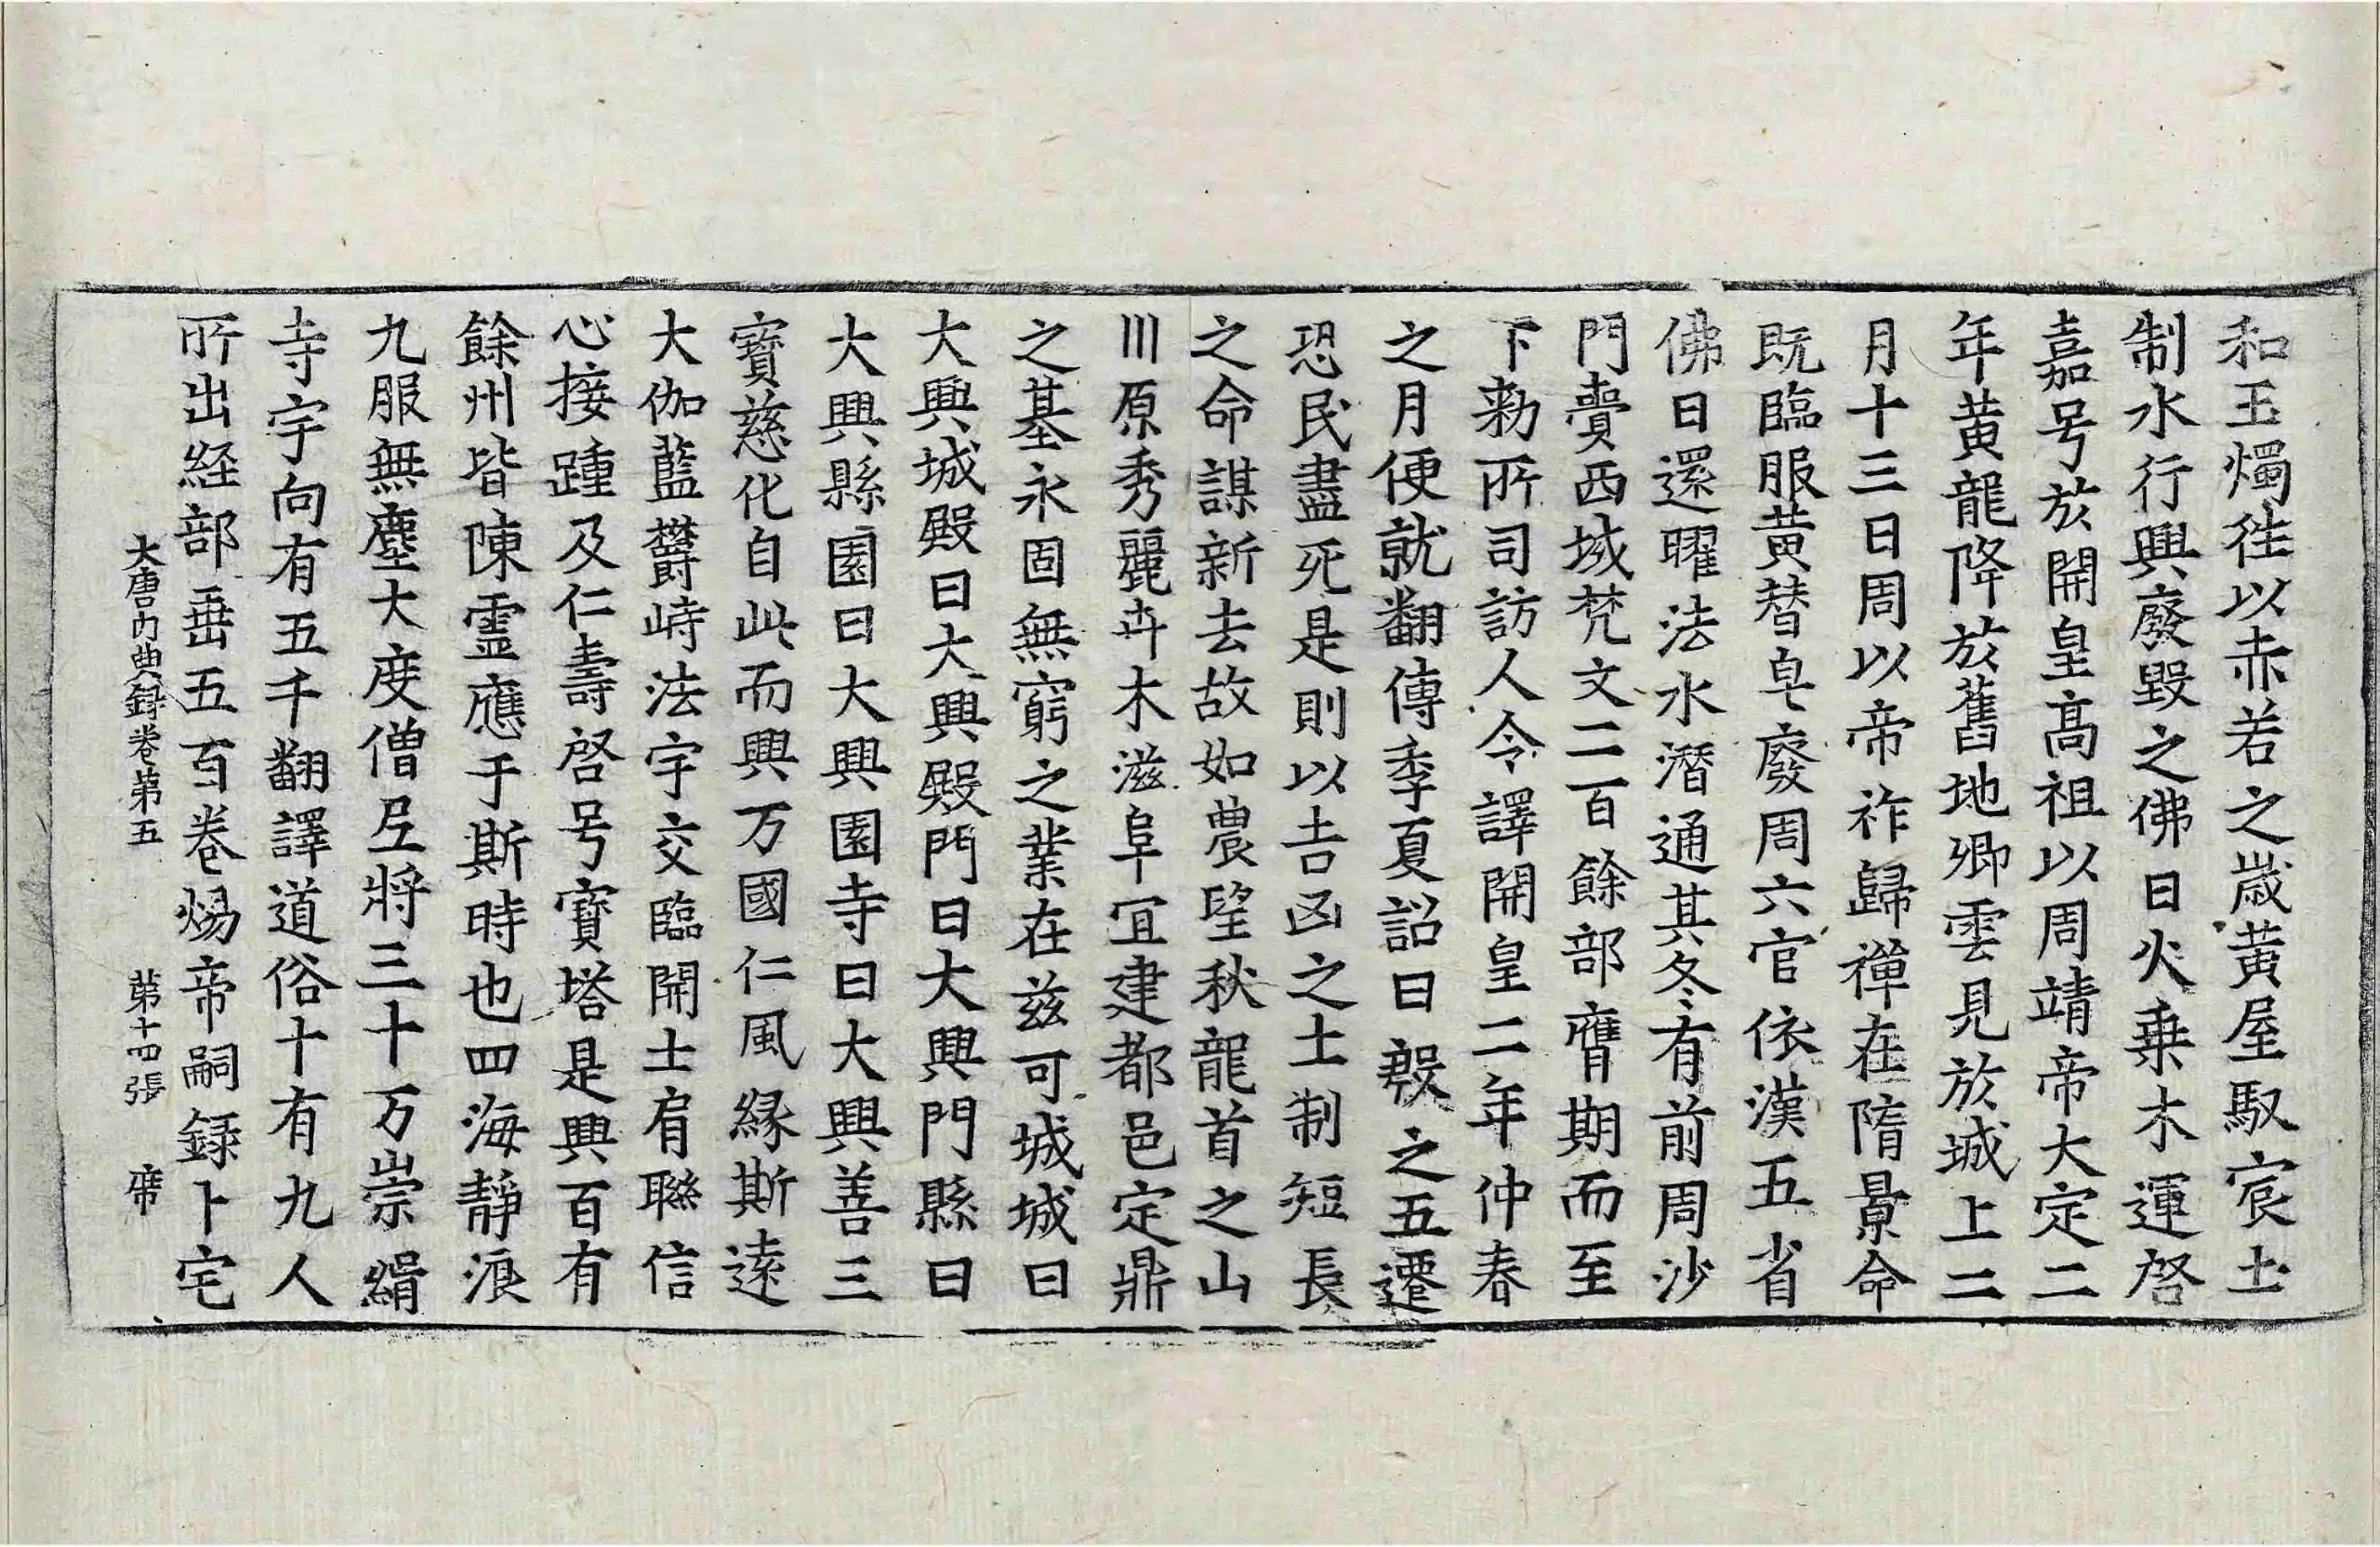 和玉燭徃以赤若之歳黄屋馭宸土
制水行興廢毀之佛日火乗木運啓
嘉号於開皇髙祖以周靖帝大定二
年黄龍降於舊地卿雲見於城上二
月十三日周以帝祚歸禪在隋景命
既臨服黄替皂廢周六官依漢五省
佛日還曜法水潛通其冬有前周沙
門賷西域梵文二百餘部膺期而至
下勑所司訪人令譯開皇二年仲春
之月便就翻傳季夏詔曰殷之五遷
恐民盡死是則以吉凶之土制短長
之命謀新去故如農望秋龍首之山
川原秀麗卉木滋阜冝建都邑定鼎
之基永固無窮之業在兹可城城曰
大興城殿曰大興殿門曰大興門縣曰
大興縣園曰大興園寺曰大興善三
寳慈化自此而興万國仁風縁斯逺
大伽藍欝峙法宇交臨開士肩聮信
心接踵及仁壽啓号寳塔是興百有
餘州皆陳霊應于斯時也四海靜浪
九服無塵大度僧尼將三十万崇緝
寺宇向有五千翻譯道俗十有九人
所出経部垂五百卷煬帝嗣録卜宅
大唐内典録卷第五 第十四張 席